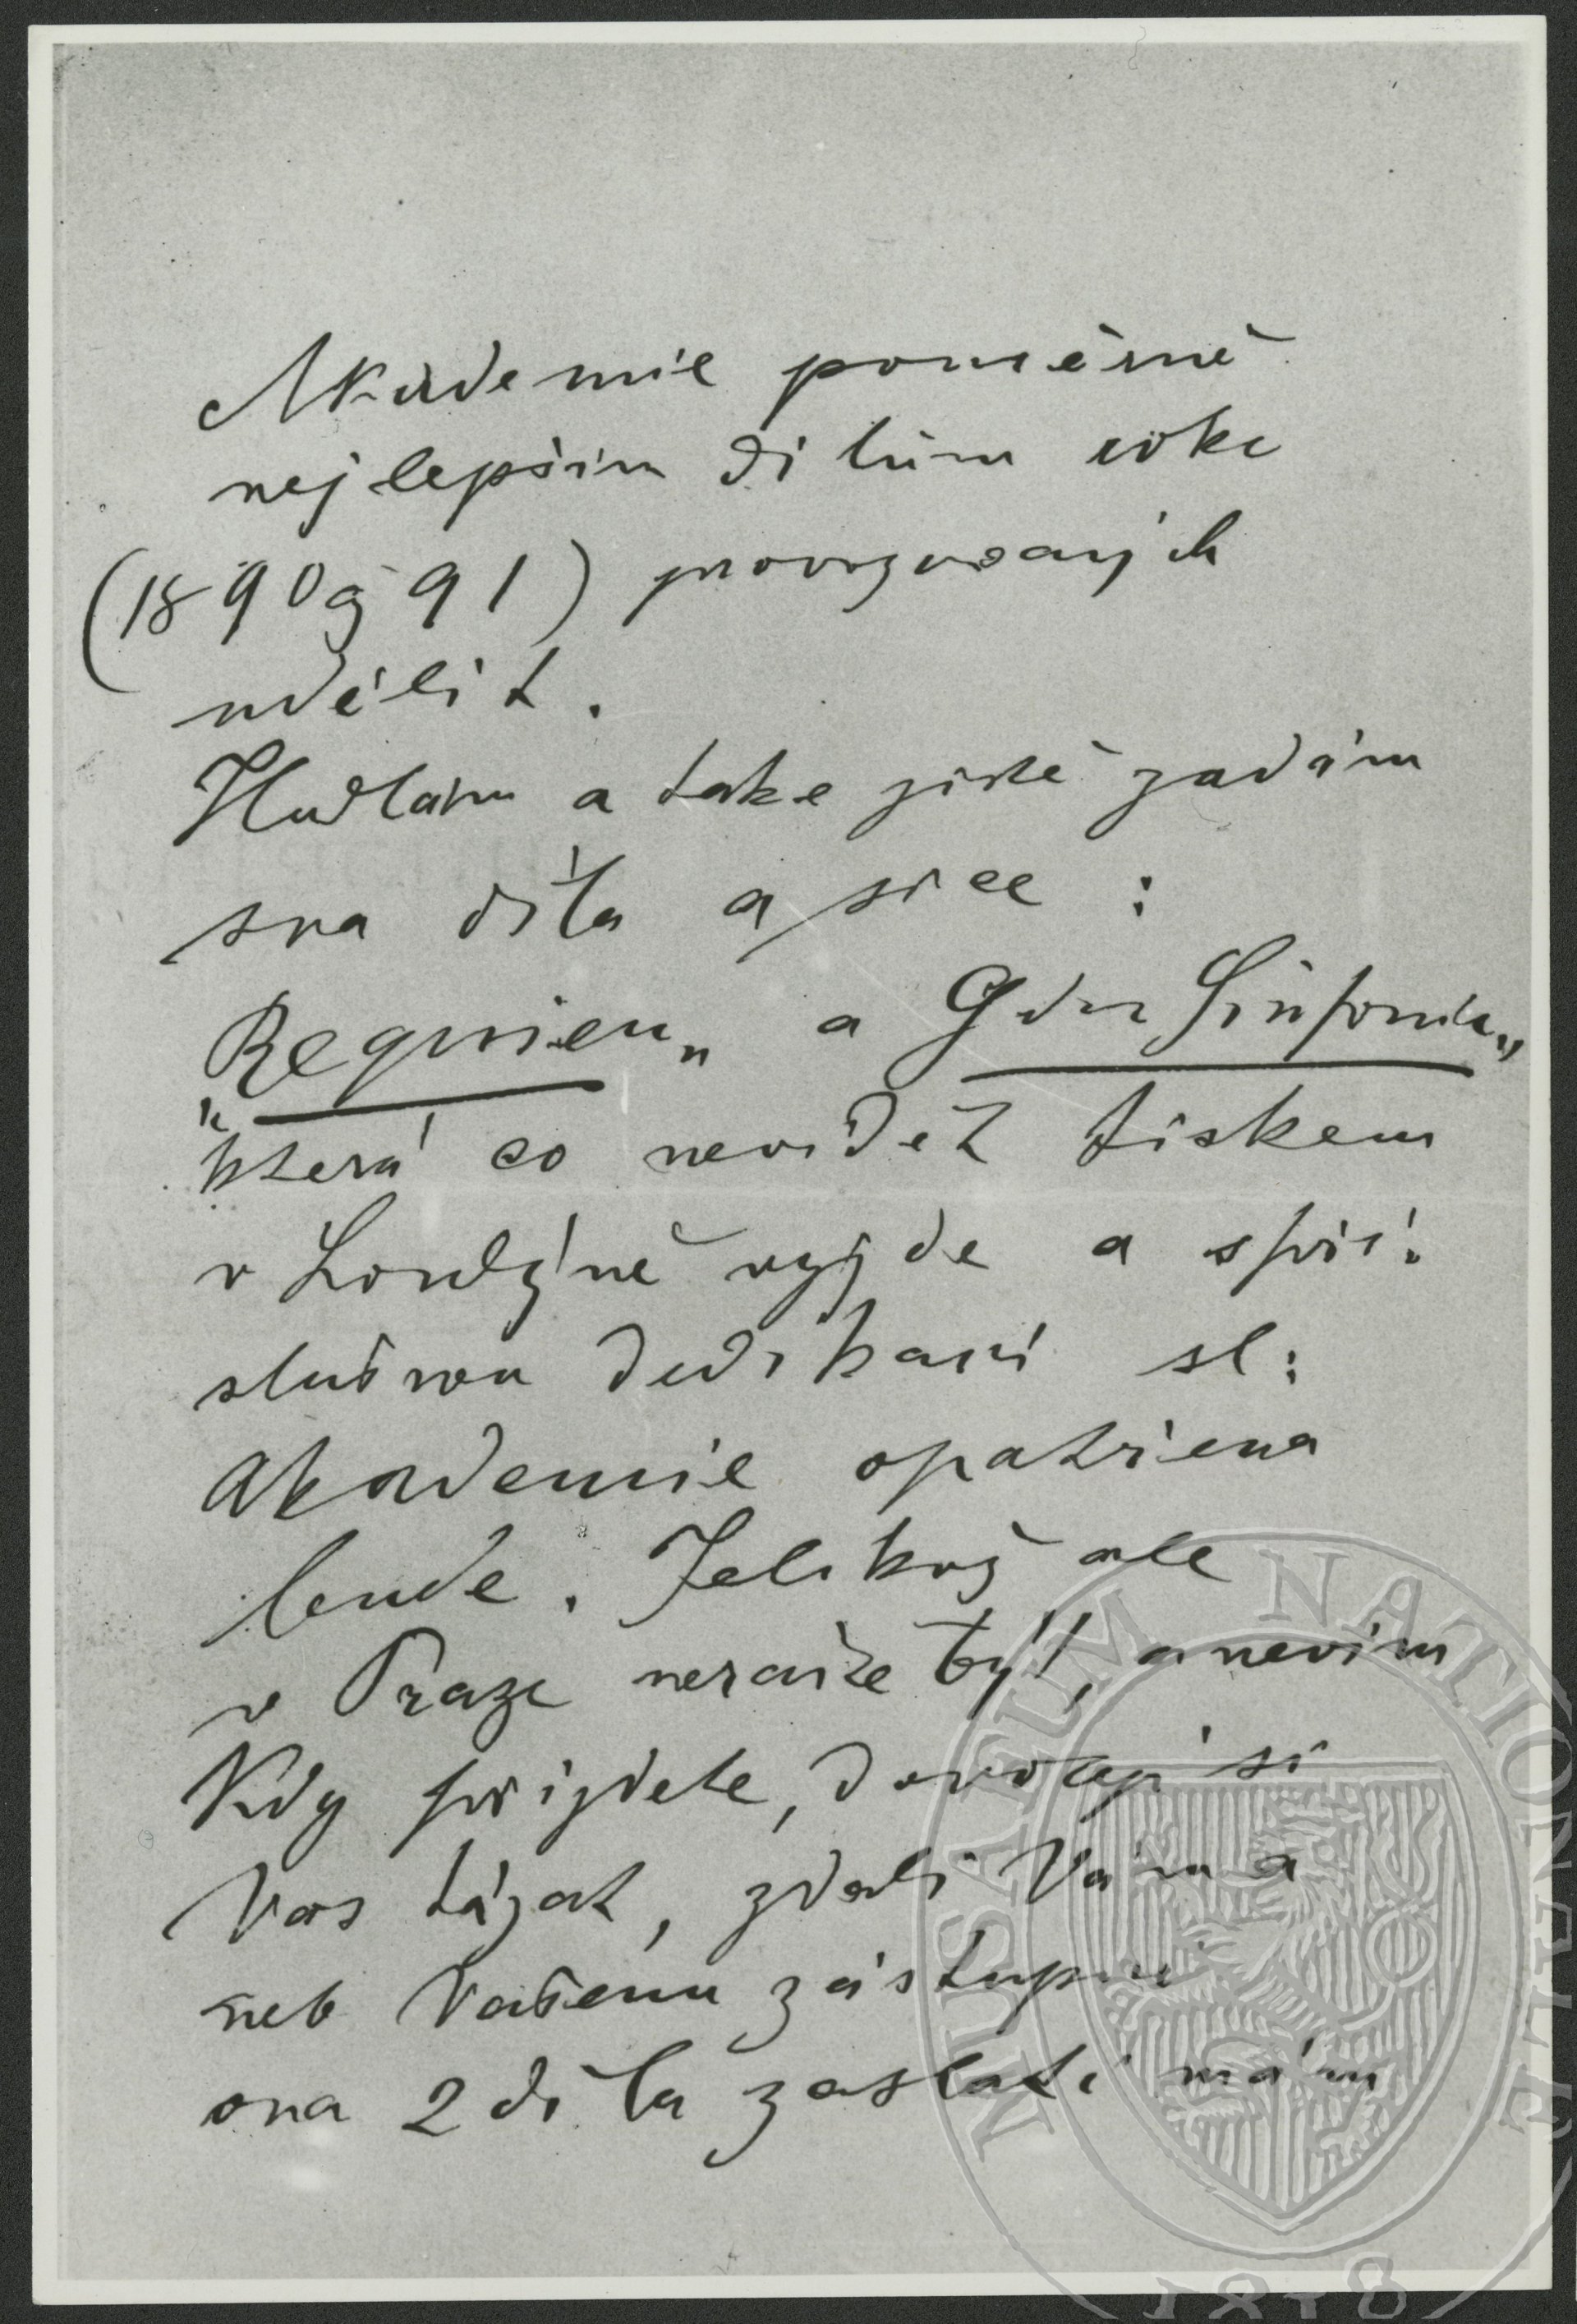 Akademie poměrně
nejlepším dílům roku
(1890 a 91) provozovaných
udělit.
Hodlám a také jistě zadám
sva díla a sice :
„Requiem„ a G dur Sinfonie„
která co nevidět tiskem
v Londýně vyjde a spří:
slušnou dedikací sl:
Akademie opatřena
bude. Jelikož ale
v Praze neračíte být, a nevím
Kdy přijdete, dovoluji si
Vás tázat, zdali Vám a
neb Vašemu zástupci
ona 2 díla zaslati mám
MUSAEUM NATIONALE
1818